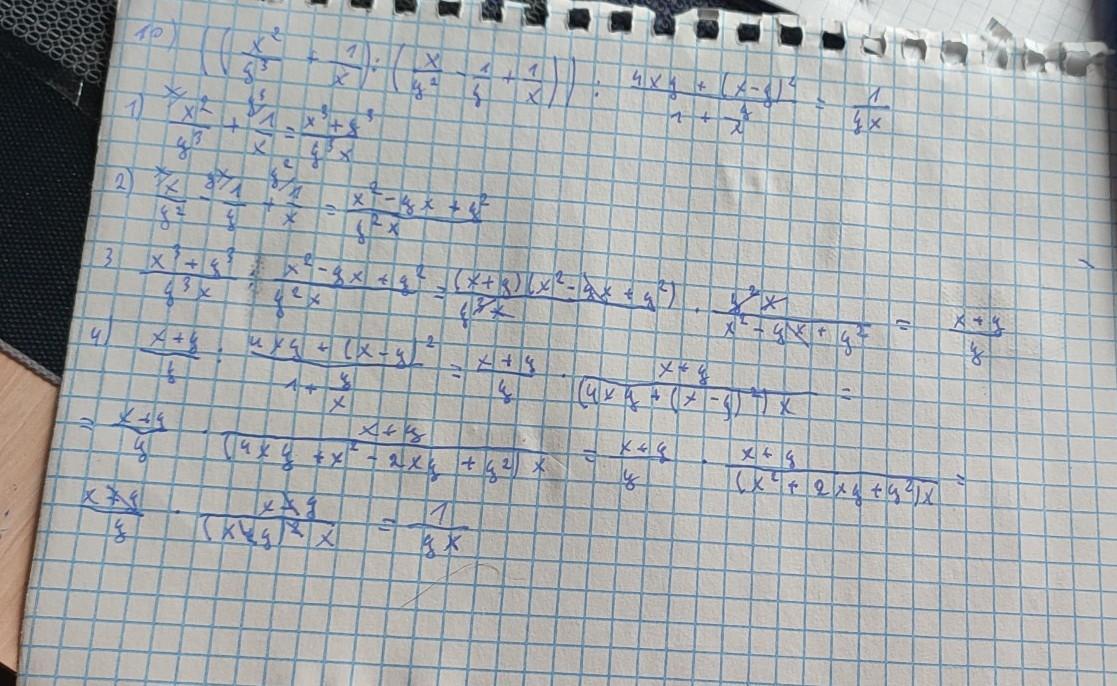 10) ((x²/y³ + 1/x) : (x/y² - 1/y + 1/x)) : (4xy + (x-y)²)/(1 + y/x) = 1/(yx)
1) ˣ/x²/y³ + ʸ³/1/x = (x³+y³)/(y³x)
2) ˣ/x/y² - ʸˣ/1/y + ʸ²/1/x = (x²-yx+y²)/(y²x)
3 (x³+y³)/(y³x) : (x²-yx+y²)/(y²x) = (x+y)(x²-yx+y²)/(y³x) · (y²x)/(x²-yx+y²) = (x+y)/y
4) (x+y)/y : (4xy + (x-y)²)/(1 + y/x) = (x+y)/y · (x+y)/((4xy+(x-y)²)x) =
= (x+y)/y · (x+y)/((4xy+x²-2xy+y²)x) = (x+y)/y · (x+y)/((x²+2xy+y²)x) =
(x+y)/y · (x+y)/((x+y)²x) = 1/(yx)